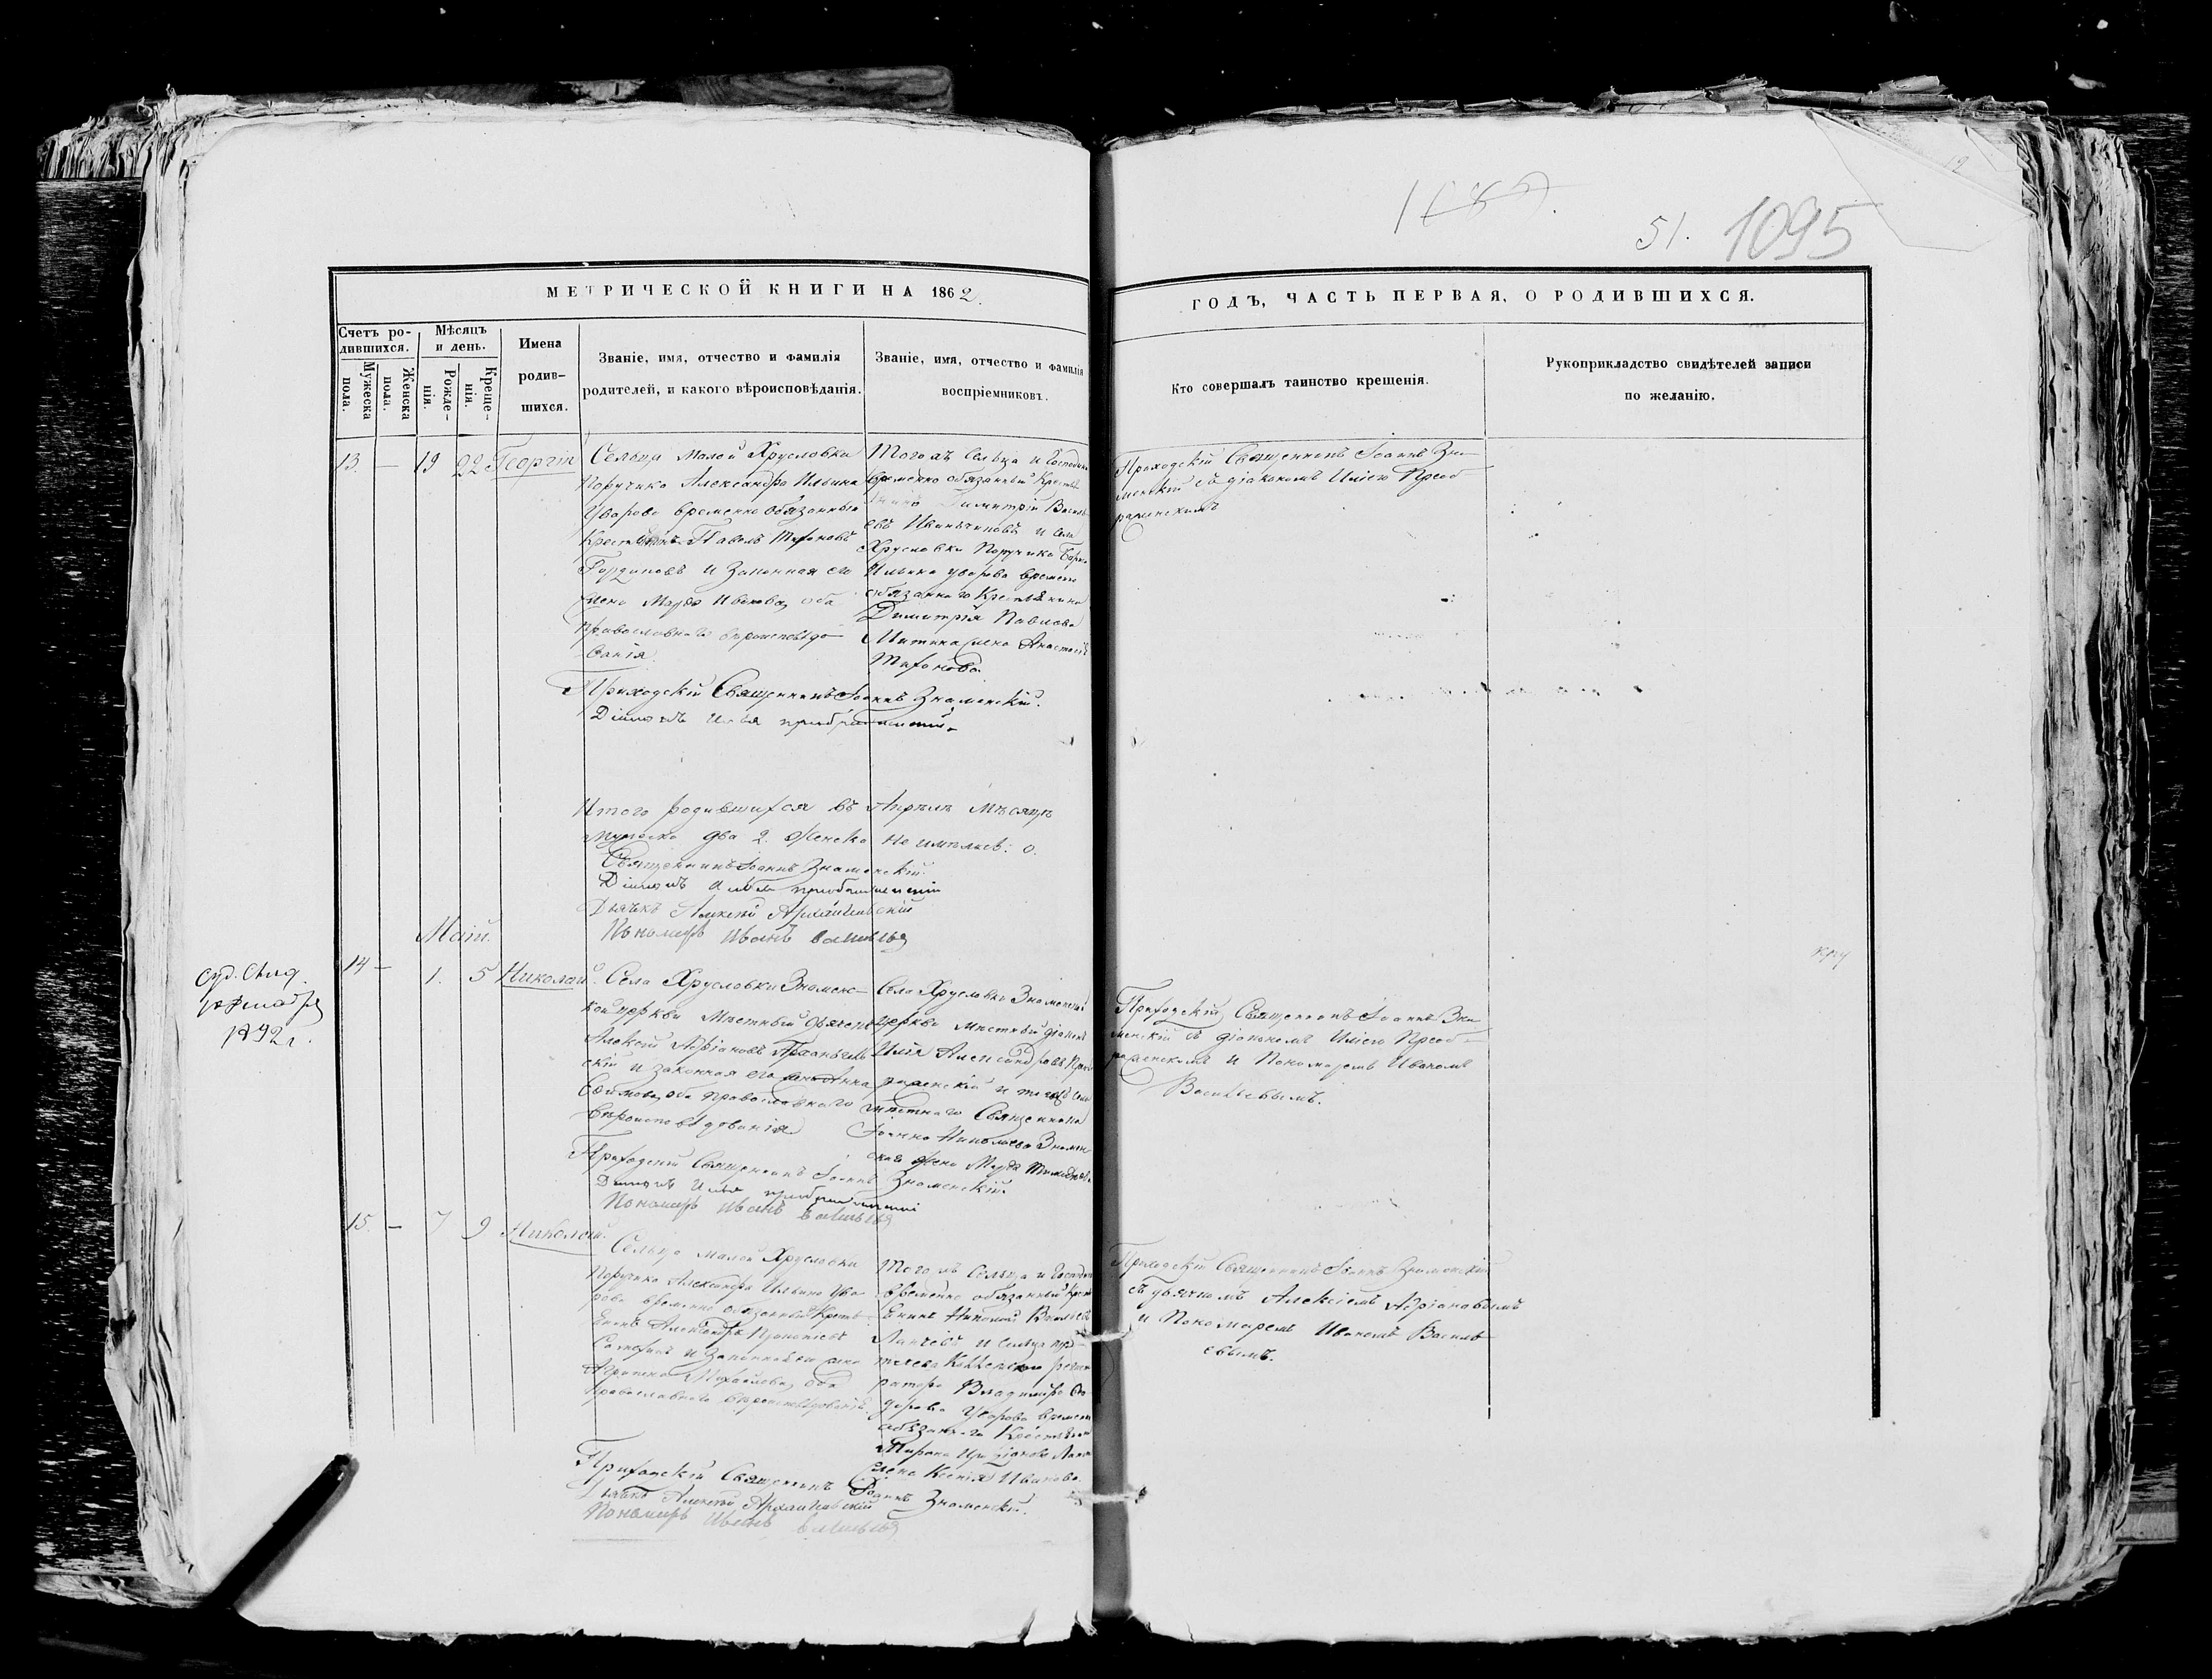 51. 1095
МЕТРИЧЕСКОЙ КНИГИ НА 1862.
ГОДЪ, ЧАСТЬ ПЕРВАЯ, О РОДИВШИХСЯ.
Счетъ ро-
дившихся.
Мужеска
пола.
Женска
пола.
Мѣсяцъ
и день.
Рожде-
нія.
Креще-
нія.
Имена
родив-
шихся.
Званіе, имя, отчество и фамилія
родителей, и какого вѣроисповѣданія.
Званіе, имя, отчество и фамилія
воспріемниковъ.
Кто совершалъ таинство крещенія.
Рукоприкладство свидѣтелей записи
по желанію.
13. — 19 22 Георгій
Сельца Малой Хрусловки
Поручика Александра Ильина
Уварова временно обязанный
Крестьянинъ Павелъ
и Законная его
жена Марѳа Иванова, оба
православнаго вѣроисповѣдо-
ванія.
Тогожъ Сельца и Господина
временно обязанный
Димитрій Василь
евъ и Села
Хрусловки Поручика
Ильина Уварова временно
обязаннаго Крестьянина
Димитрія Павлова
жена
Приходскій Священникъ Іоаннъ Зна-
менскій съ діакономъ Иліею Преоб
раженскимъ
Приходскій Священникъ Іоаннъ Знаменскій.
Діаконъ Илья
Итого родившихся въ Апрѣлѣ Мѣсяцѣ
Мужеска два 2. Женска не имѣлось: 0.
Священникъ Іоаннъ Знаменскій.
Діаконъ Илья
Дьячекъ Алексѣй Архангельскій
Пономарь Иванъ Васильевъ
Май.
1892 г.
14 — 1. 5 Николай
Села Хрусловки Знаменс-
кой церкви Мѣстный дьячекъ
Алексѣй Адріановъ Архангель
скій и законная его жена Анна
оба православнаго
вѣроисповѣдованія
Села Хрусловки Знаменской
церкви Мѣстный діаконъ
Илія Александровъ
раженскій и
мѣстнаго Священника
Іоанна Николаева Знамен
скаго жена Марѳа
Приходскій Священникъ Іоаннъ Зна
менскій съ діакономъ Иліею Преоб-
раженскимъ и Пономаремъ Иваномъ
Васильевымъ.
Приходскій Священникъ Іоаннъ Знаменскій.
Діаконъ Илья
Пономарь Иванъ Васильевъ
15. — 7 9 Николай
Сельца Малой Хрусловки
Поручика Александра Ильина Ува
рова временно обязанный Кресть
янинъ Александръ Прокопіевъ
и Законная его жена
Михайлова, оба
православнаго вѣроисповѣдованія.
Тогожъ Сельца и Господина
временно обязанный Крест
янинъ Николай Васильевъ
и сельца
Владиміра Ѳе
дорова Уварова временно
обязаннаго Крестьянина
жена Ксенія Иванова.
Приходскій Священникъ Іоаннъ Знаменскій
съ дьячкомъ Алексіемъ Адріановымъ
и Пономаремъ Иваномъ Василь
евымъ.
Приходскій Священникъ Іоаннъ Знаменскій.
Дьячекъ Алексѣй Архангельскій
Пономарь Иванъ Васильевъ